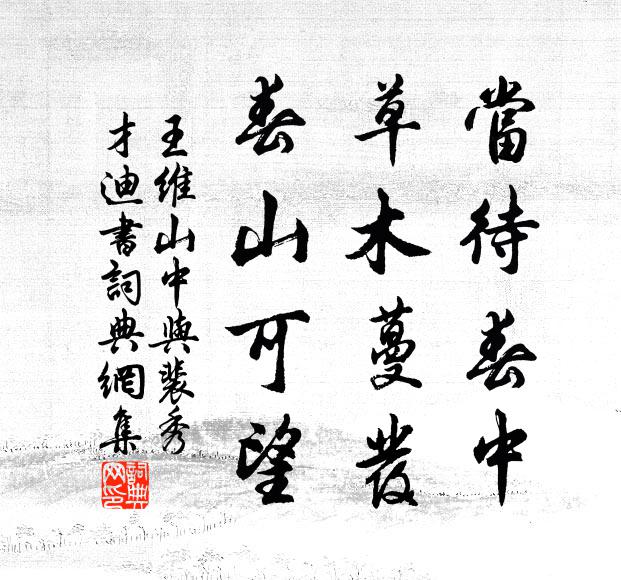 當待春中
草木蔓發
春山可望
王維山中與裴秀
才迪書詞典網集
詞典網印